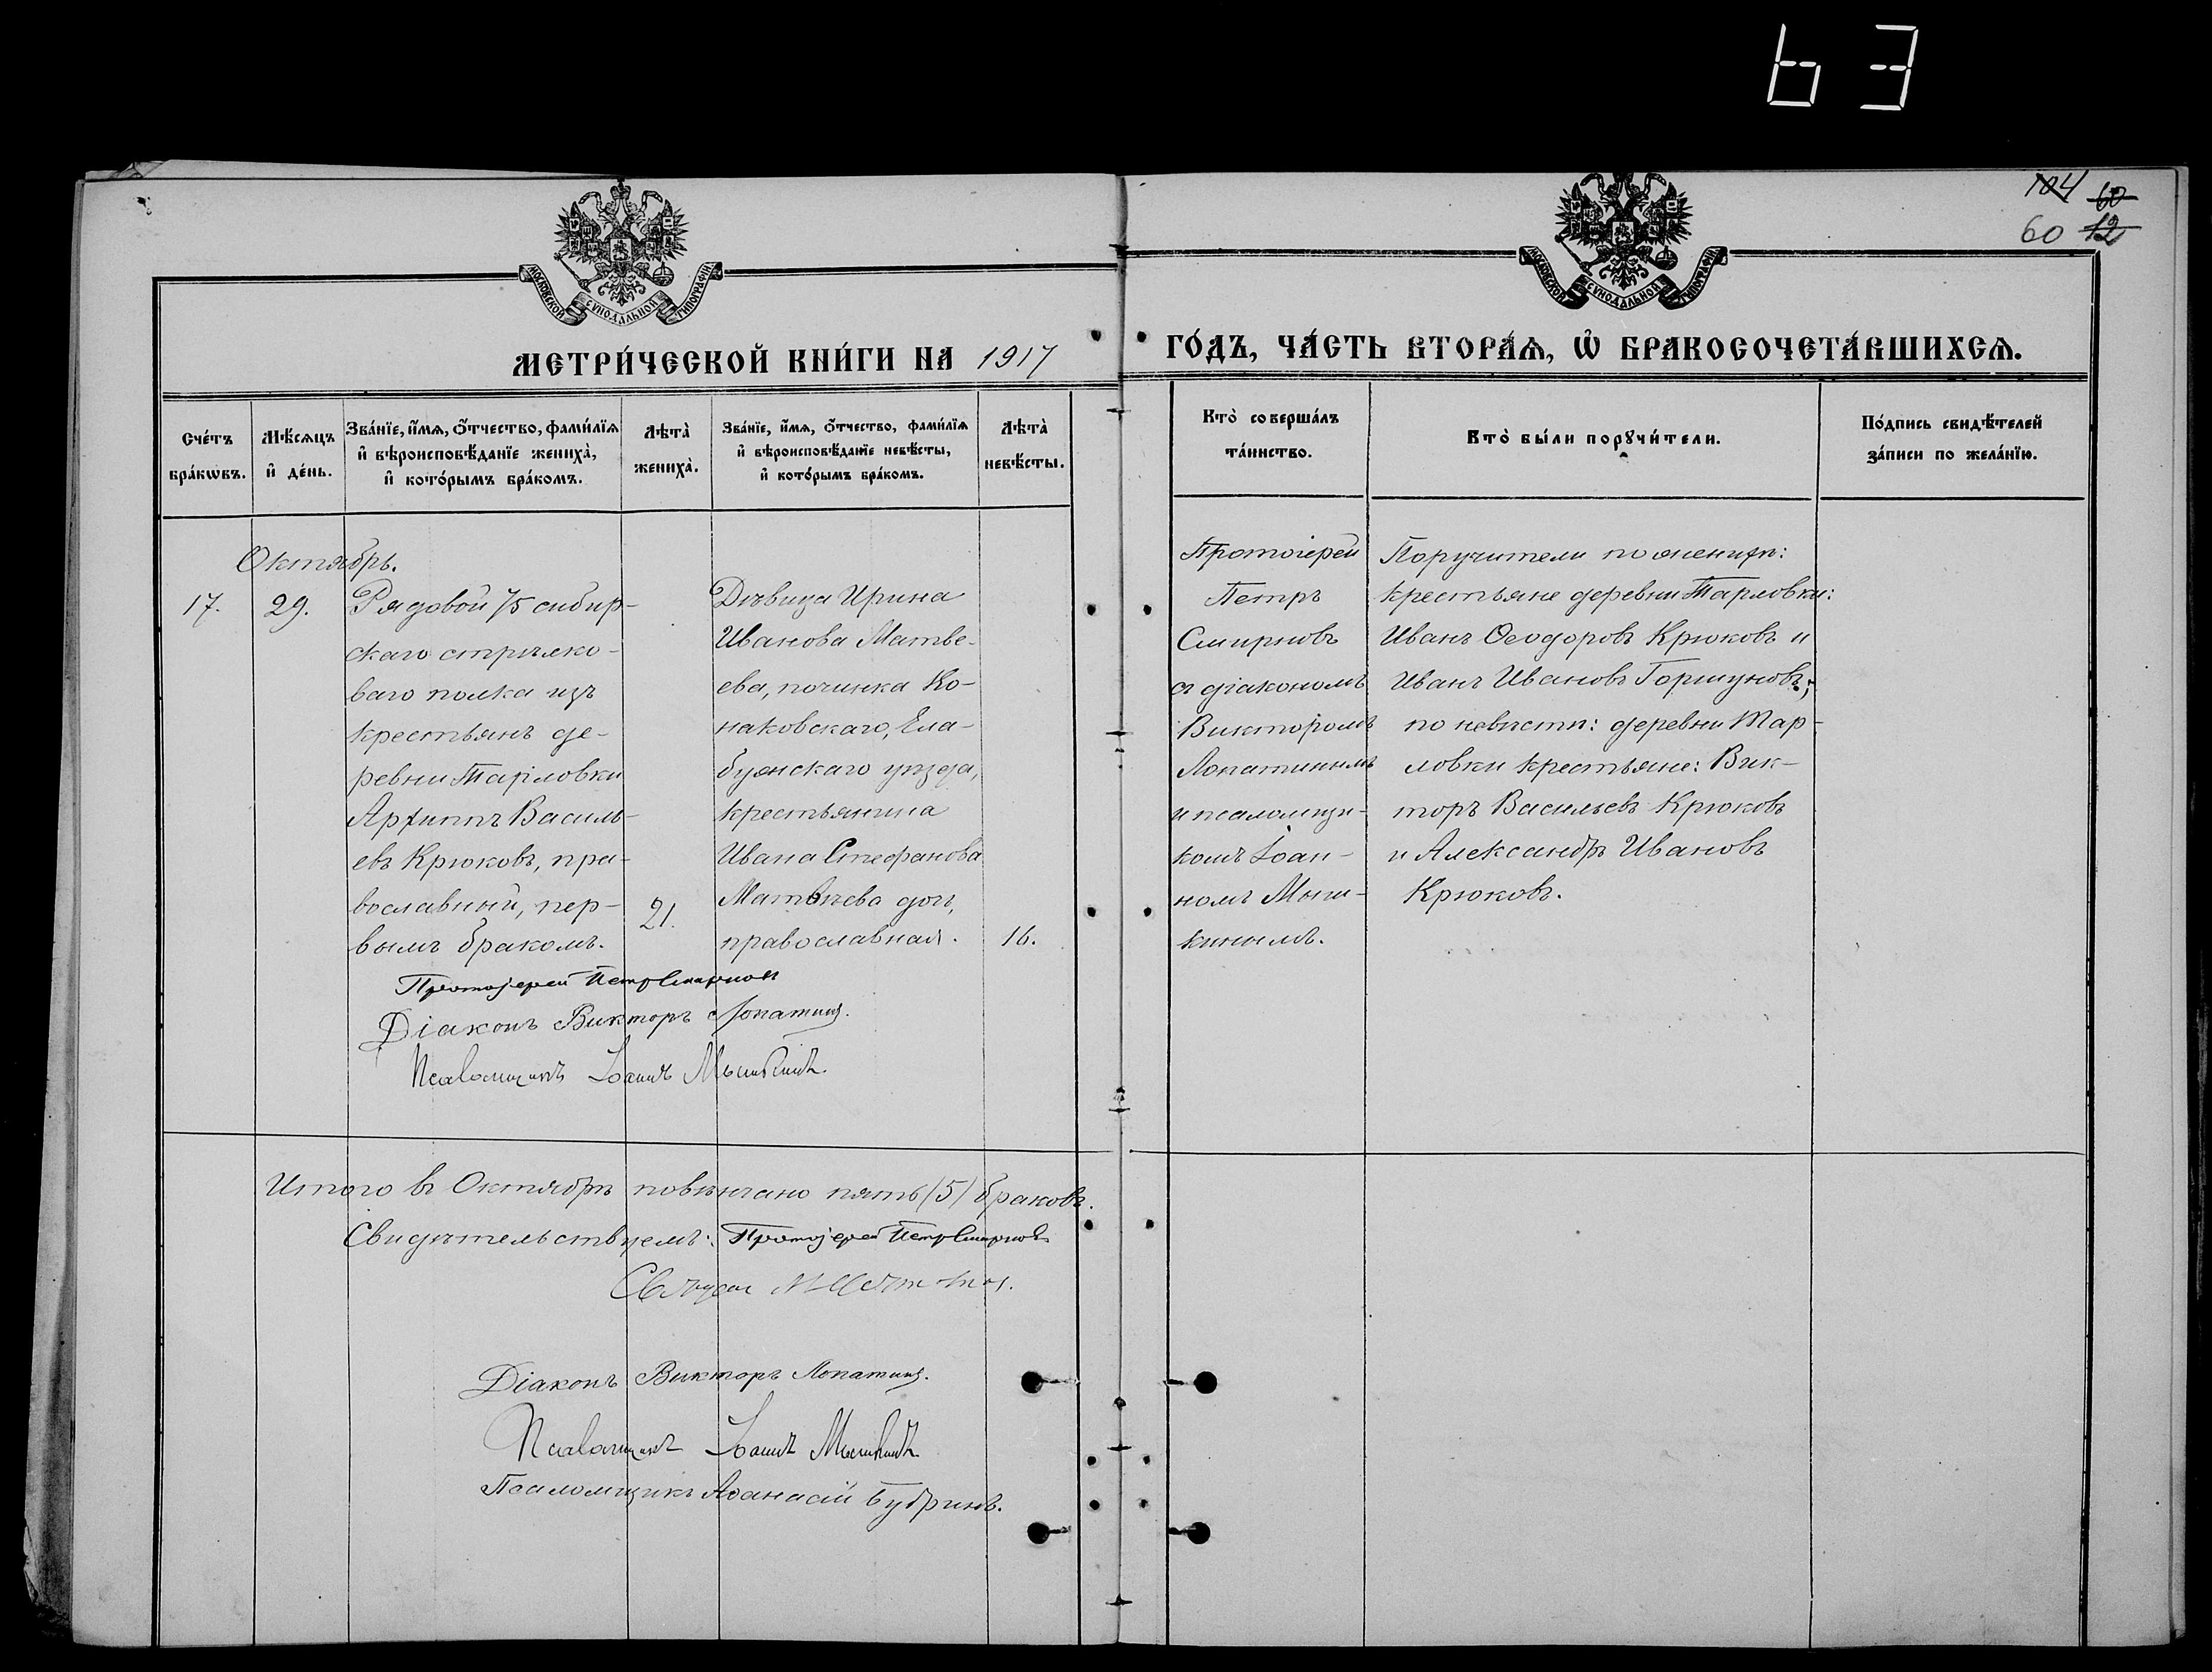 63
104 60
60 12
МОСКОВСКОЙ СѴНОДАЛЬНОЙ ТИПОГРАФІИ
МОСКОВСКОЙ СѴНОДАЛЬНОЙ ТИПОГРАФІИ
МЕТРИ́ЧЕСКОЙ КНИ́ГИ НА 1917
ГО́ДЪ, ЧА́СТЬ ВТОРА́Ѧ, Ѡ҆ БРАКОСОЧЕТА́ВШИХСѦ.
Сче́тъ
бра́кѡвъ.
Мѣ́сѧцъ
и҆ де́нь.
Зва́нїе, и҆́мѧ, о҆́тчество, фами́лїѧ
и҆ вѣроисповѣ́данїе жениха̀,
и҆ кото́рымъ бра́комъ.
Лѣта̀
жениха̀.
Зва́нїе, и҆́мѧ, о҆́тчество, фами́лїѧ
и҆ вѣроисповѣ́данїе невѣ́сты,
и҆ кото́рымъ бра́комъ.
Лѣта̀
невѣ́сты.
Кто̀ соверша́лъ
та́инство.
Кто̀ бы́ли порꙋчи́тели.
По́дпись свидѣ́телей
за́писи по жела́нїю.
Октябрь.
17.
29.
Рядовой 75 сибир-
скаго стрѣлко-
ваго полка изъ
крестьянъ де-
ревни Тарловки
Архиппъ Василь-
евъ Крюковъ, пра-
вославный, пер-
вымъ бракомъ.
21.
Дѣвица Ирина
Иванова Матве-
ева, починка Ко-
наковскаго, Ела-
бужскаго уѣзда,
крестьянина
Ивана Стефанова
Матвѣева дочь,
православная.
16.
Протоіерей
Петръ
Смирновъ
съ діакономъ
Викторомъ
Лопатинымъ
и псаломщи-
комъ Іоан-
номъ Мыш-
кинымъ.
Поручители по женихѣ:
крестьяне деревни Тарловки:
Иванъ Ѳеодоровъ Крюковъ и
Иванъ Ивановъ Горшуновъ;
по невѣстѣ: деревни Тар-
ловки крестьяне: Вик-
торъ Васильевъ Крюковъ
и Александръ Ивановъ
Крюковъ.
Протоіерей Петръ Смирновъ
Діаконъ Викторъ Лопатинъ.
Псаломщикъ Іоаннъ Мышкинъ.
Итого въ Октябрѣ повѣнчано пять (5) браковъ.
Свидѣтельствуемъ: Протоіерей Петръ Смирновъ
Діаконъ Викторъ Лопатинъ.
Псаломщикъ Іоаннъ Мышкинъ
Псаломщикъ Аѳанасій Бубринъ.